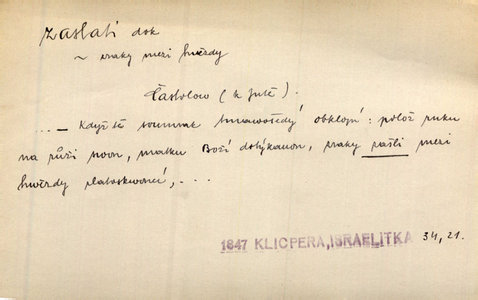 zaslati dok
~ zraky mezi hvězdy
Častolow (k Jutě).
... — Když tě soumrak tmawošedý obklopí: polož ruku
na růži swou, matku Boží dotýkanou, zraky zašli mezi
hwězdy zlatoskwoucí, . . .
1847 KLICPERA, ISRAELITKA 34, 21.